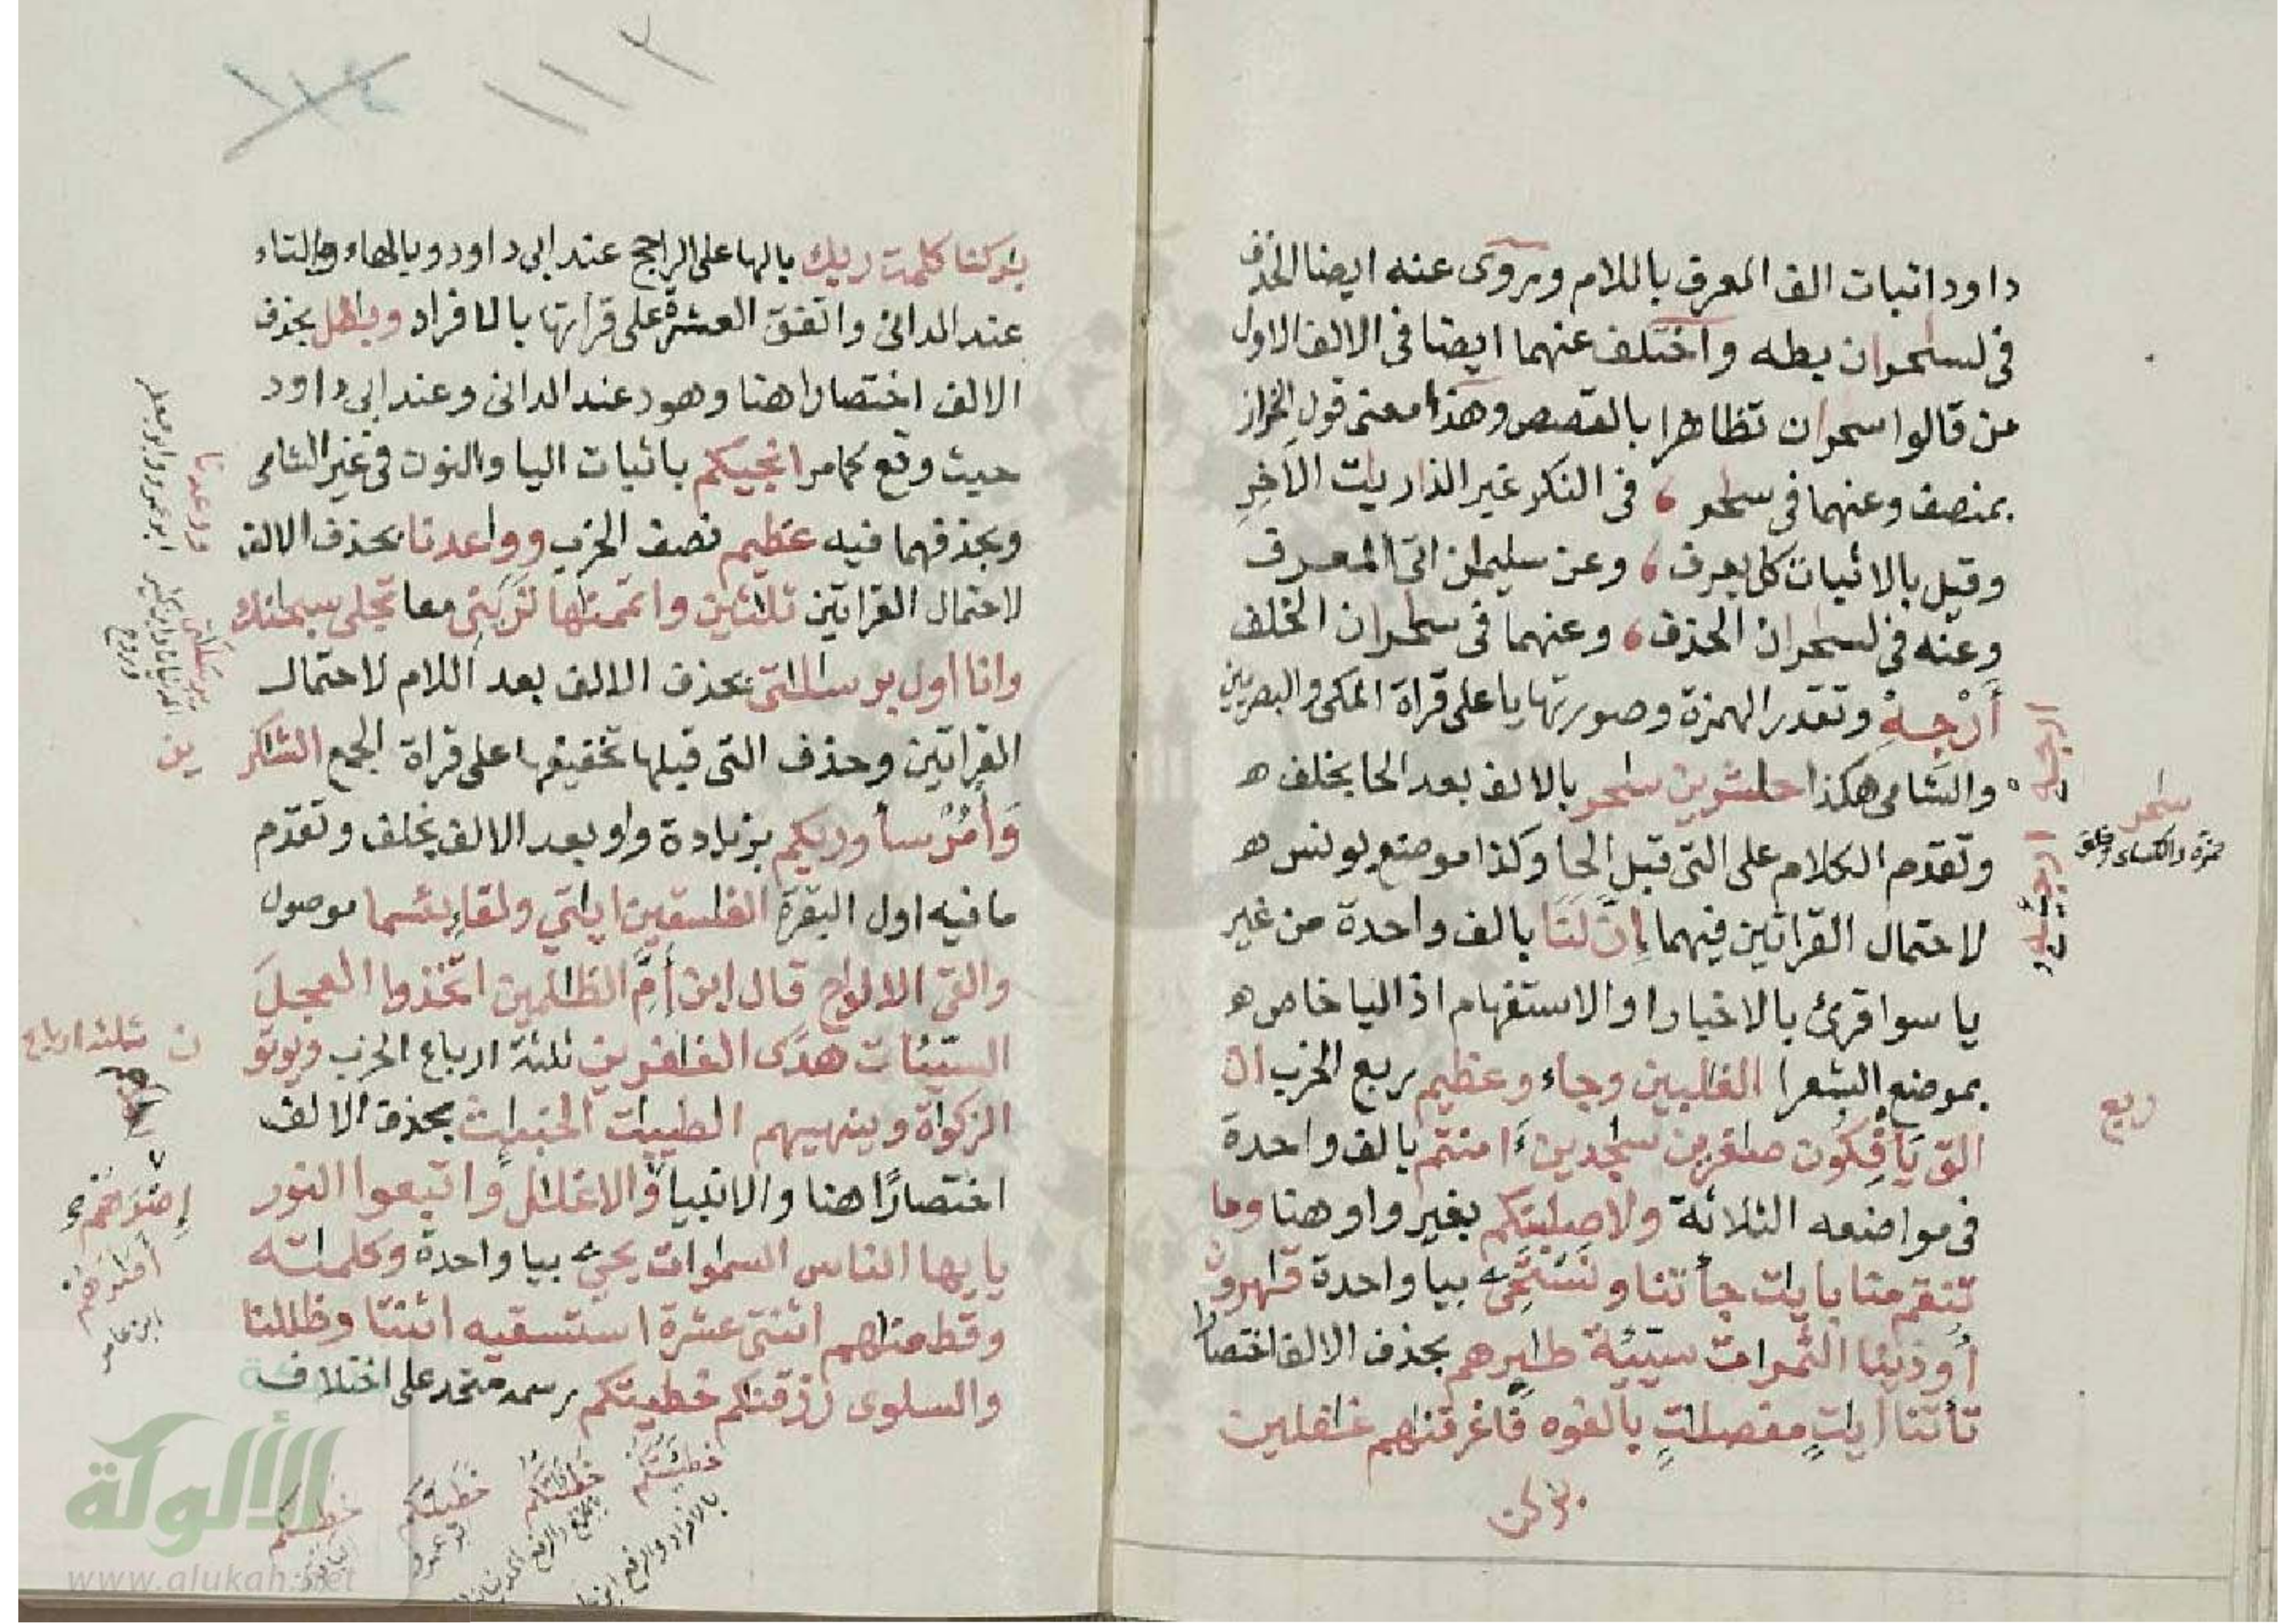 داود اثبات الف المعرف باللام وروى عنه ايضا الحذف
فى لسٰحران بطه واختلف عنهما ايضا فى الالف الاول
من قالوا سحران تظاهرا بالقصص وهذا معنى قول الخراز
بمنصف وعنهما فى سٰحر ، فى النكر غير الذاريٰت الاَخِرِ
وقيل بالاثبات كل يعرف ، وعن سليمٰن اتى المعرف
وعنه فى لسٰحران الحذف ، وعنهما فى سٰحران الخلف
أَرْجِهْ وتقدر الهمزة وصورتها يا على قراة المكى والبصريين
والشامى هكذا حٰشرين سٰحر بالالف بعد الحا بخلف ه
وتقدم الكلام على التى قبل الحا وكذا موضع يونس ه
لاحتمال القراتين فيهما إنّ لَنَا بالف واحدة من غير
يا سوا قرئ بالاخبار او الاستفهام اذ اليا خاص ه
بموضع الشعرا الغٰلبين وجاء وعظيم ربع الحزب ان
الق يَأفِكُون صٰغرين سٰجدين ءَامنتم بالف واحدة
فى مواضعه الثلاثة ولاصلبنكم بغير واو هنا وما
تنقم منا بايٰت جأتنا ونستحى بيا واحدة قٰهرون
أُوذينا الثمرات سيّئة طٰئرهم بحذف الالف اختصارا
تأتنا ايٰتٍ مفصلٰتٍ بٰلغوه فاغرقنٰهم غٰفلين
بٰركن
ارجه
سٰحر
حمزة والكسائى وخلف
ربع
١١٢
بٰركنا كلمت ربك بالها على الراجح عند ابى داود وبالهاء والتاء
عند الدانى واتفق العشرة على قرأتها بالافراد وبٰطل بحذف
الالف اختصارا هنا وهود عند الدانى وعند ابى داود
حيث وقع كمامر انجيٰكم باثبات اليا والنون فى غير الشامى
وبحذفهما فيه عظيم نصف الحزب ووٰعدنا بحذف الالف
لاحتمال القراتين ثلٰثين واتممنٰها لن ترٰنى معا تجلى سبحٰنك
وانا اول برسٰلٰتى بحذف الالف بعد اللام لاحتمال
القراتين وحذف التى قبلها تخفيفا على قراة الجمع الشٰكر
ين
وَأمُرْ سأوريكم بزيادة واو بعد الالف بخلف وتقدم
ما فيه اول البقرة الفٰسقين ايٰتي ولقاءِ بئسما موصول
والقى الالواح قال ابن أمَّ الظٰلمين اتخذوا العجل
السيّئات هدى الغٰفرين ثلثة ارباع الحزب ويوتو
ن ثلثة ارباع
الزكوٰة وينهيهم الطيبٰت الخبٰئث بحذف الالف
اختصارًا هنا والانبيا والاغلٰل واتبعوا النور
يايها الناس السموات يحى بيا واحدة وكلمٰته
وقطعنٰهم اثنتى عشرة استسقيه اثنتا وظللنا
والسلوى رزقنٰكم خطيئٰتكم رسمه متحد على اختلافه
وٰعدنا
ابو جعفر
إصْرَهُمْ
ءاصٰرهم
ابن عامر
خطيئتُكم
بالافراد والرفع
خطيئٰتُكم
خطيئٰتكم
الألوكة
www.alukah.net